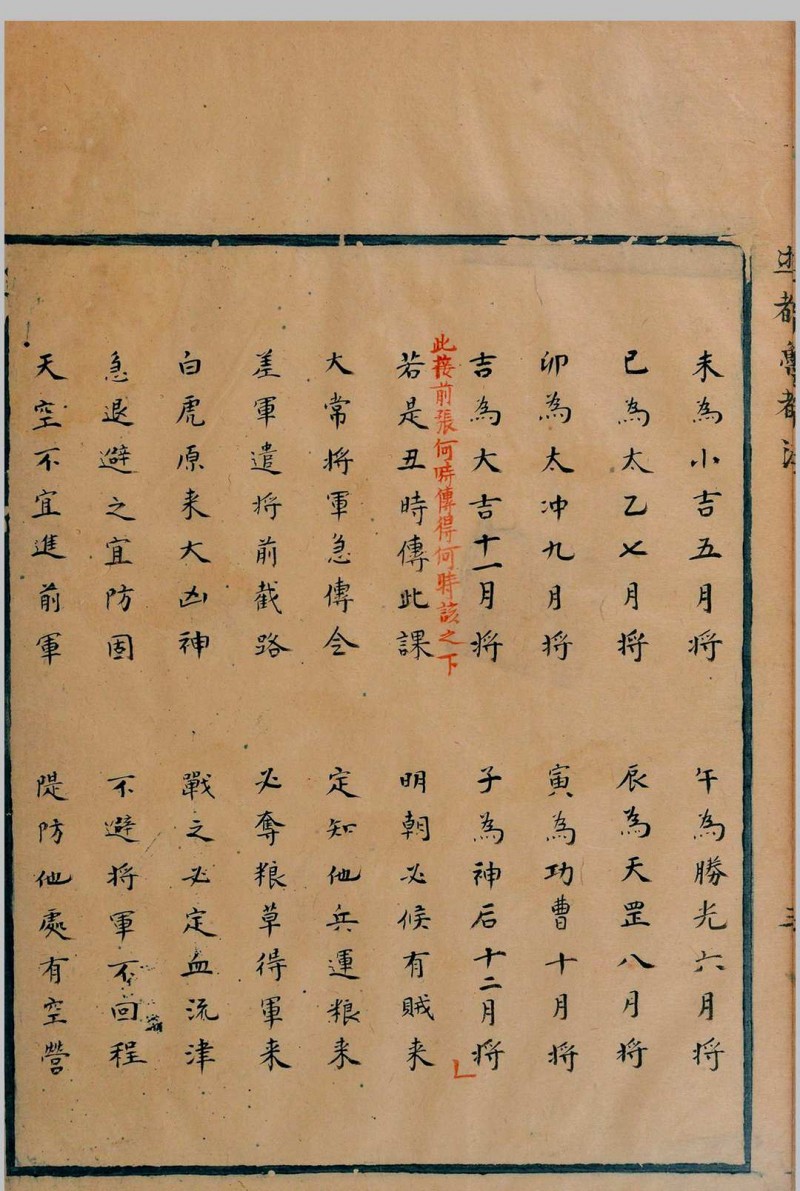 都魯都
未為小吉五月将　午為勝光六月将
已為太乙七月将　辰為天罡八月将
卯為太冲九月将　寅為功曹十月将
吉為大吉十一月将　子為神后十二月将
此接前張何時傳得何時該之下
若是丑時傳此課　明朝必候有賊来
大常将軍急傳令　定知他兵運粮来
差軍遣将前截路　必奪粮草得軍来
白虎原来大凶神　戰之必定血流津
急退避之宜防固　不避将軍不回程
天空不宜進前軍　隄防他處有空營